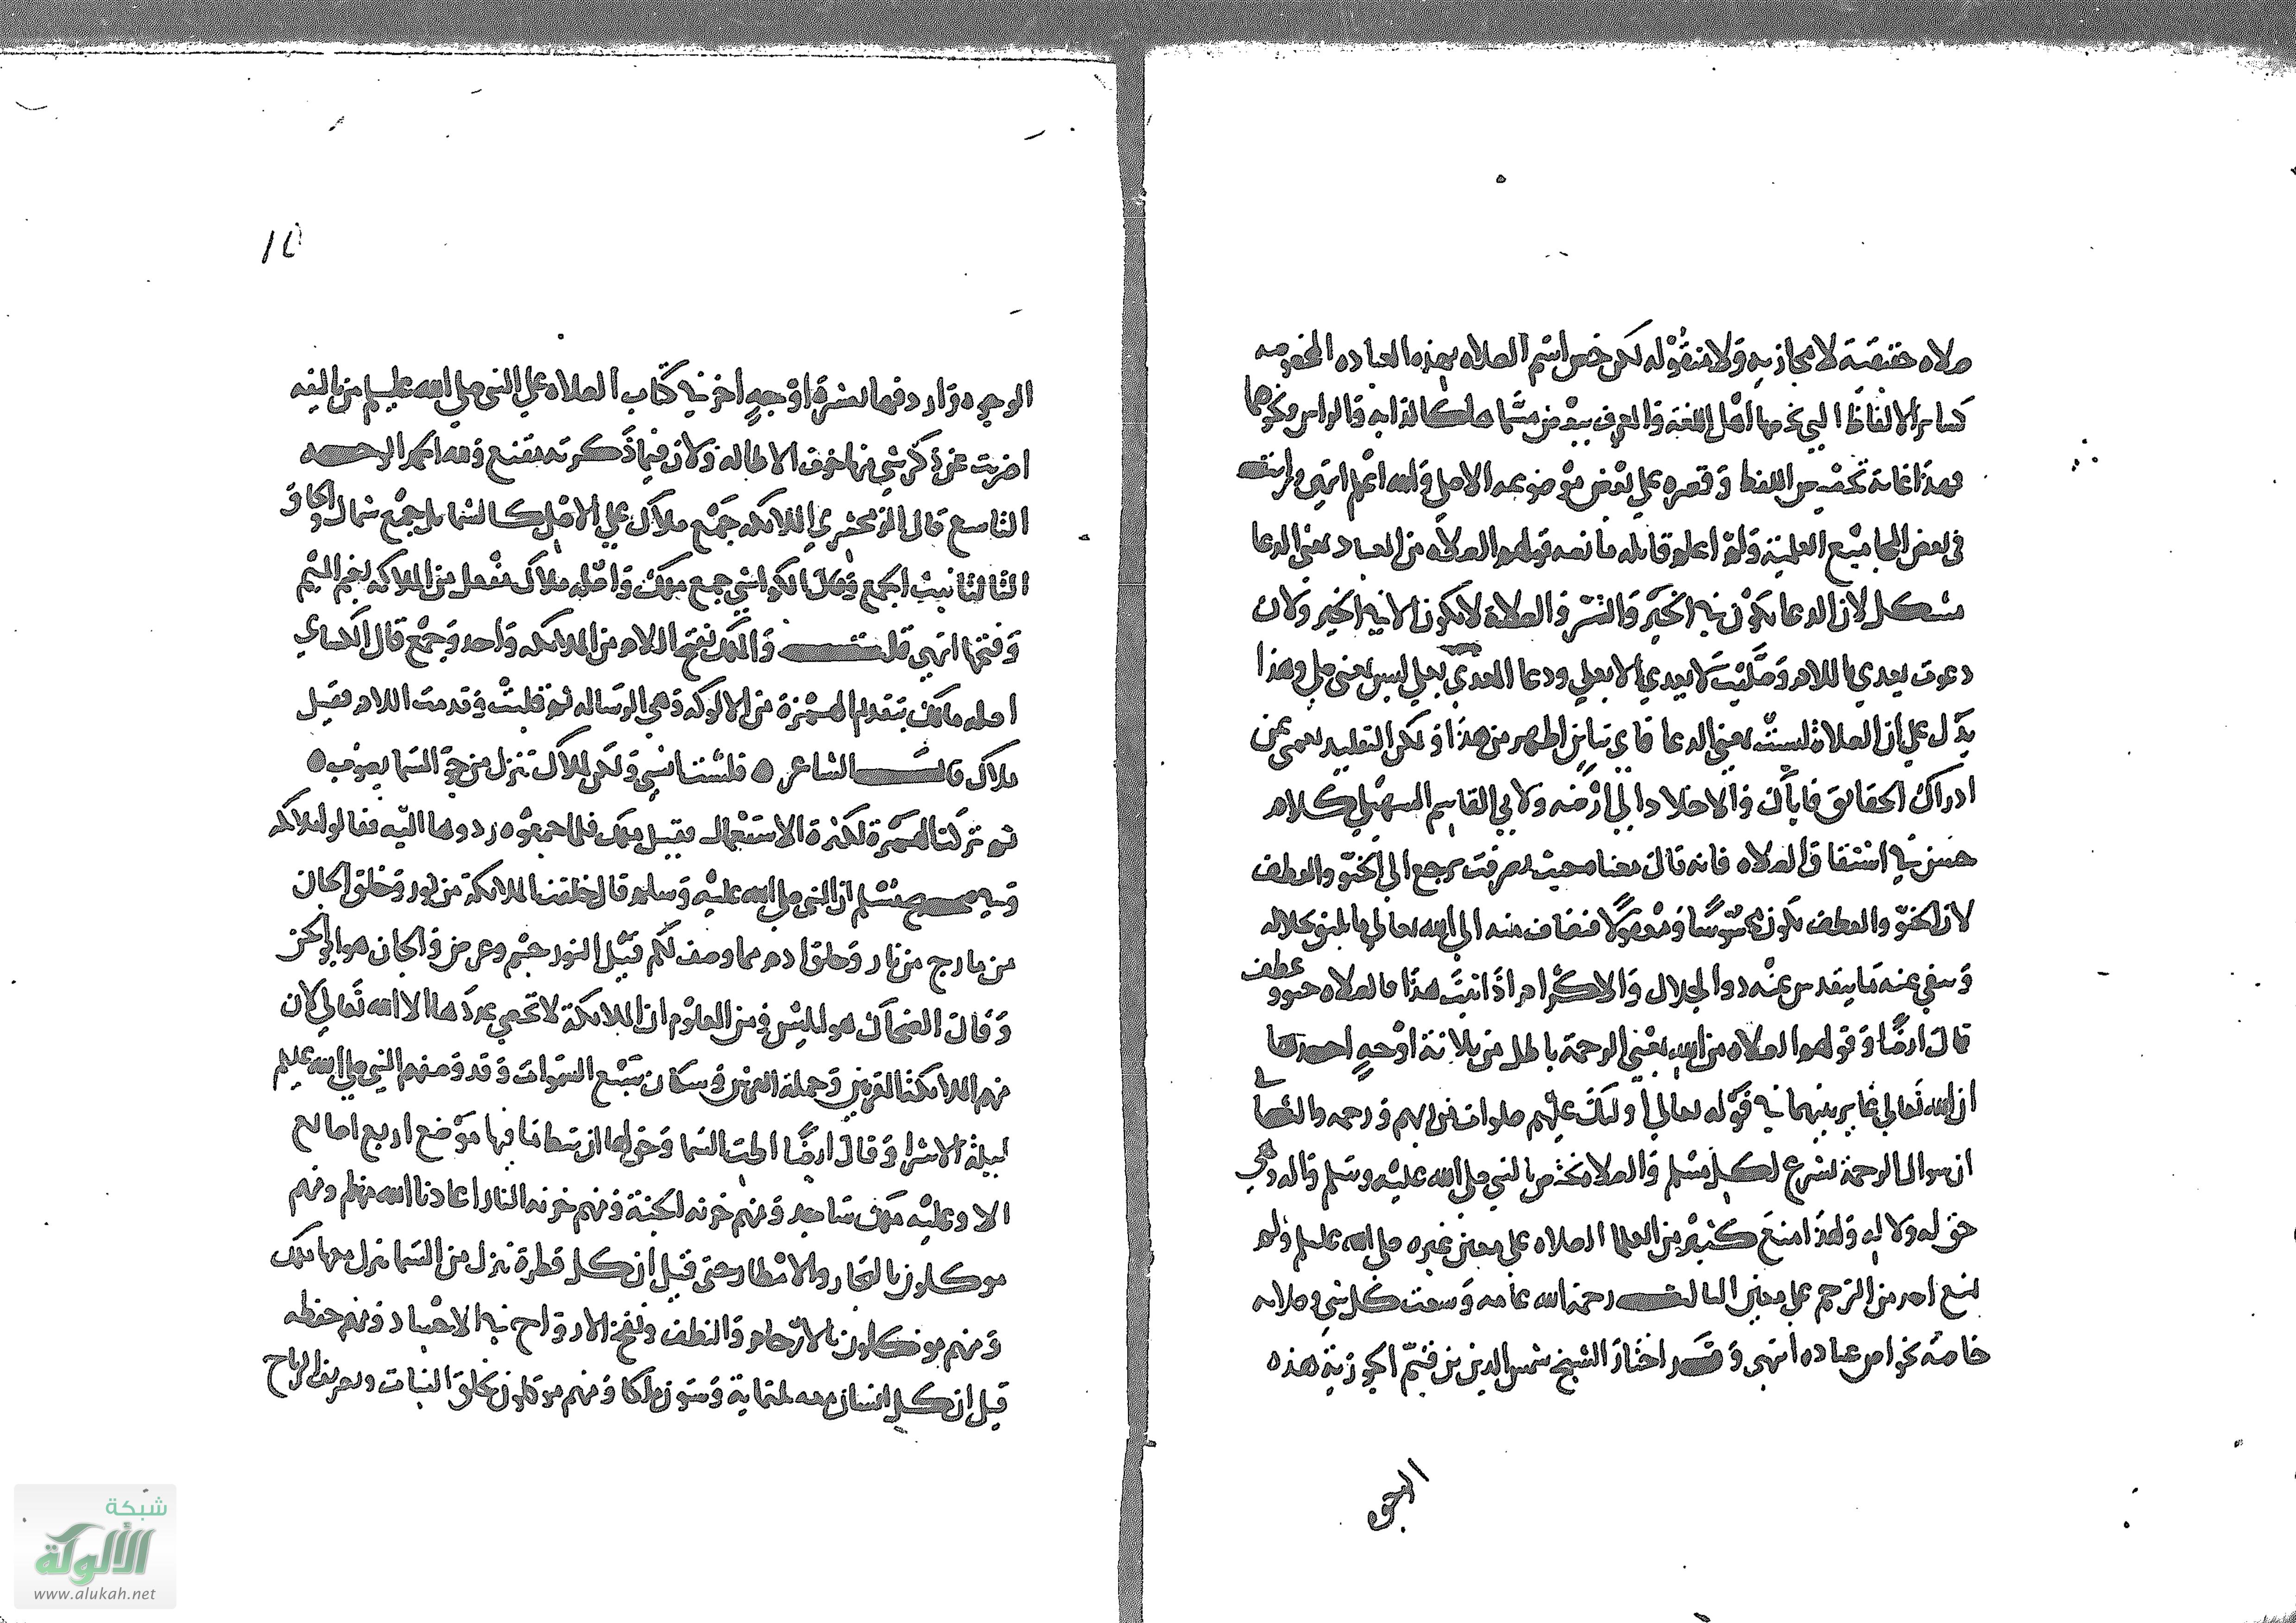 صلاه حقيقة لا مجازيه ولا منقوله لكن خص اسم الصلاه بهذه العباده المخصوصه
كساير الالفاظ التي يخصها اهل اللغة والعرف ببعض مسماها كالدابه والراس ونحوهما
فهذا غاية تخصيص اللفظ وقصره على بعض موضوعه الاصلي والله اعلم انتهى ورايت
في بعض المجاميع العلمية ولم اعلم قايله ما نصه قولهم الصلاه من العباد بمعنى الدعا
مشكل لان الدعا يكون في الخير والشر والصلاة لا تكون الا في الخير ولان
دعوت يعدي باللام وصليت لا يعدي الا بعلى ودعا المعدي بعلى ليس بمعنى صلى وهذا
يدل على ان الصلاة ليست بمعنى الدعا فاي تباين اظهر من هذا ولكن التقليد يعمي عن
ادراك الحقايق فاياك والاخلاد الى ارضه ولابي القاسم السهيلي كلام
حسن في اشتقاق الصلاه فانه قال معناها حيث تصرفت يرجع الى الحنو والعطف
لان الحنو والعطف يكون محسوسا ومعقولا فيضاف منه الى الله تعالى ما يليق بجلاله
وينفى عنه ما يتقدس عنه ذو الجلال والاكرام اذا ثبت هذا فالصلاه حنو وعطف
قال ايضا وقولهم الصلاه من الله بمعنى الرحمة باطل من ثلاثة اوجه احدها
ان الله تعالى غاير بينهما في قوله تعالى اوليك عليهم صلوات من ربهم ورحمه والثاني
ان سوال الرحمة لشرع لكل مسلم والصلاه تختص بالنبي صلى الله عليه وسلم واله وهي
حق له ولاله ولهذا منع كثير من العلما الصلاه على معين غيره صلى الله عليه وسلم ولم
يمنع احد من الترحم على معين الثالث رحمة الله عامه وسعت كل شي وصلاته
خاصة بخواص عباده انتهى وقد اختار الشيخ شمس الدين بن قيم الجوزية هذه
الوجوه وزاد فيها عشرة اوجه اخر في كتاب الصلاه على النبي صلى الله عليه وسلم من تاليفه
اضربت عن ذكر شي منها خوف الاطاله ولان فيما ذكرته مقنع ولله الحمد الوجه
التاسع قال الزمخشري الملايكه جمع ملاك على الاصل كالشمايل جمع شمال والحاق
التا لتانيث الجمع وقال الكواشي جمع ملك واصله ملاك مفعل من الملاكه بضم الميم
وفتحها انتهى قلت والملك بفتح اللام من الملايكه واحد وجمع قال الكساي
اصله مالك بتقديم الهمزة من الالوكه وهي الرساله ثم قلبت وقدمت اللام فقيل
ملاك قال الشاعر ٥ فلست لانسي ولكن لملاك تنزل من جو السما يصوب ٥
ثم تركت الهمزة لكثرة الاستعمال فقيل ملك فلما جمعوه ردوها اليه فقالوا ملايكه
وفي صحيح مسلم ان النبي صلى الله عليه وسلم قال خلقت الملايكة من نور وخلق الجان
من مارج من نار وخلق ادم مما وصف لكم قيل النور جسم وعرض والجان هو ابو الجن
وقال الضحاك هو ابليس ومن المعلوم ان الملايكة لا تحصي عددها الا الله تعالى لان
منهم الملايكة المقربين وحملة العرش وسكان سبع السموات وقد وصفهم النبي صلى الله عليه وسلم
ليلة الاسرا وقال ايضا اطت السما وحق لها ان تئط ما فيها موضع اربع اصابع
الا وعليه ملك ساجد ومنهم خزنه الجنة ومنهم خزنه النار اعاذنا الله منها ومنهم
موكلون بالبحار والامطار حتى قيل ان كل قطرة تنزل من السما ينزل معها ملك
ومنهم موكلون بالارحام والنطف ونفخ الارواح في الاجساد ومنهم حفظه
قيل ان كل انسان معه ثلثماية وستون ملكا ومنهم موكلون بخلق النبات وتصريف الرياح
شبكة
الألوكة
www.alukah.net